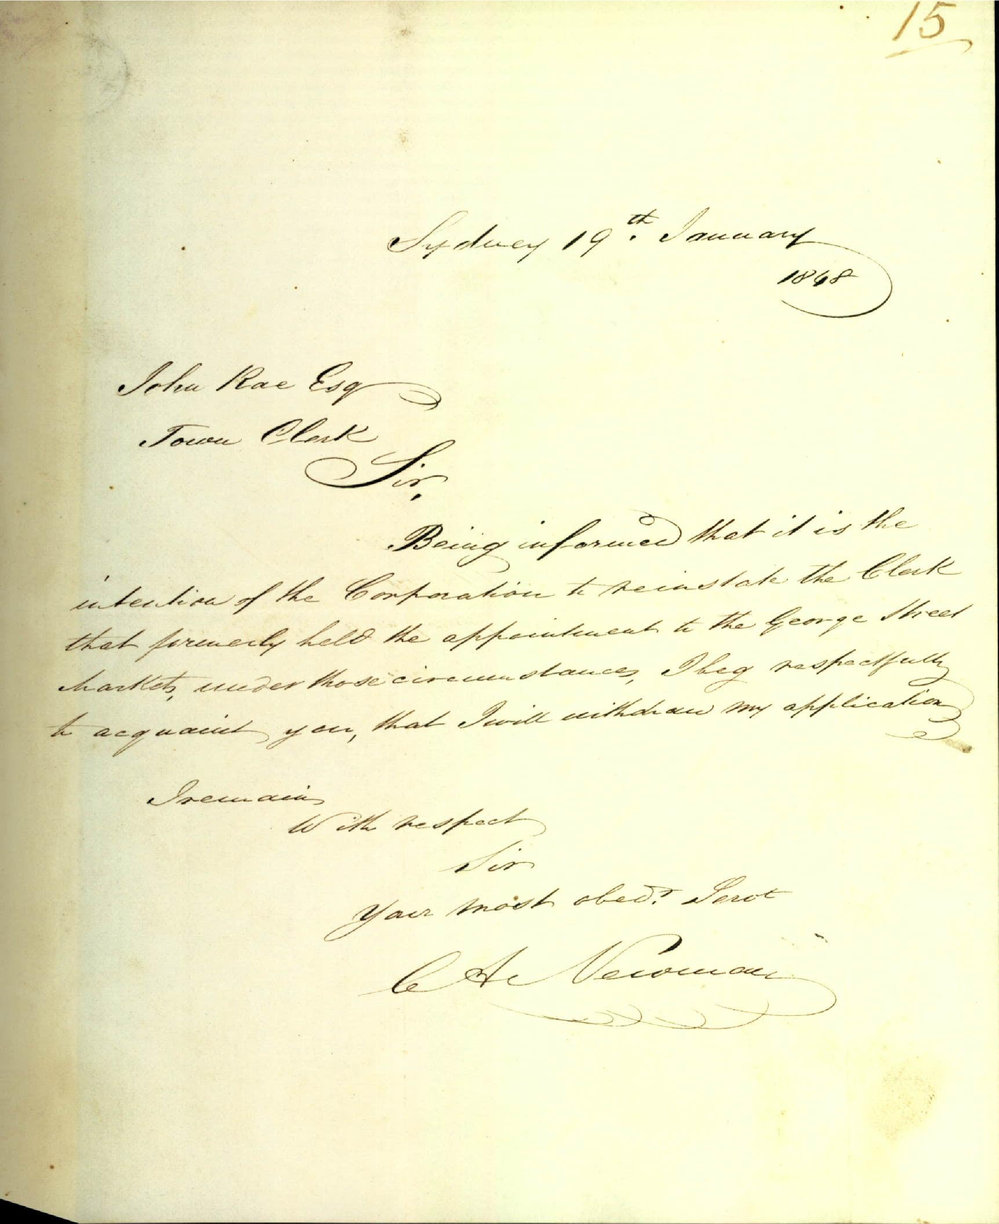 15
Sydney 19th January
1848
John Rae Esq
Town Clerk
Sir,
Being informed that it is the
intention of the Corporation to reinstate the Clerk
that formerly held the appointment to the George Street
Markets, under those circumstances, I beg respectfully
to acquaint you, that I will withdraw my application
I remain
With respect
Sir
Your most obedt. Servt
C A Newman